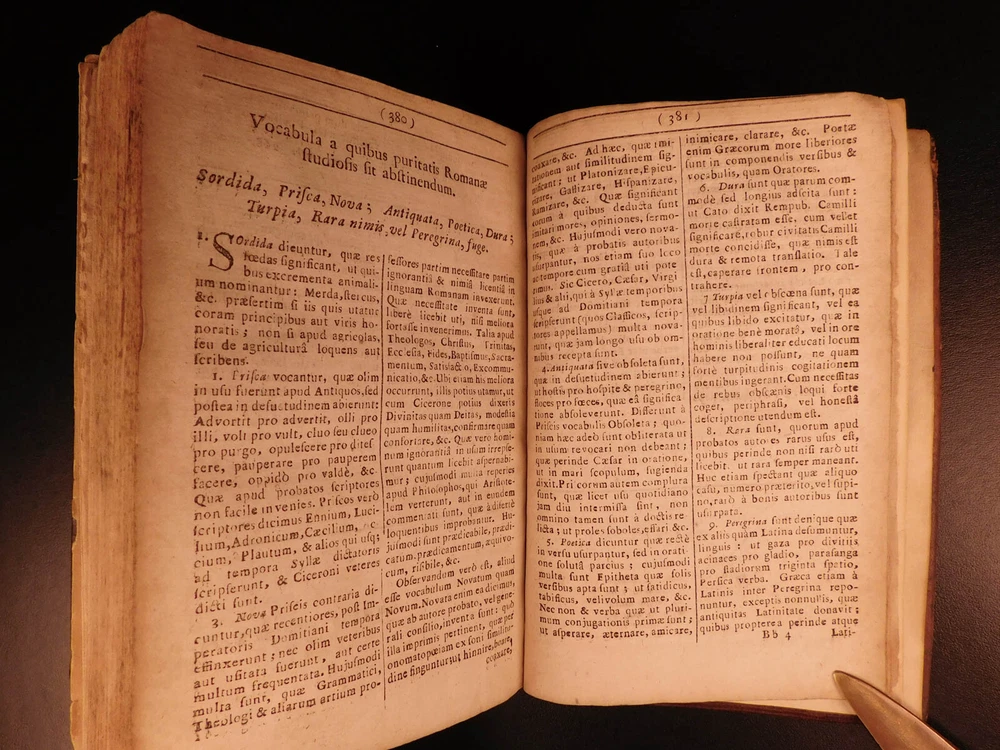 ( 380 )
Vocabula a quibus puritatis Romanæ
ſtudioſis ſit abſtinendum.
Sordida, Priſca, Nova; Antiquata, Poetica, Dura;
Turpia, Rara nimis vel Peregrina, fuge.
1. SOrdida dicuntur, quæ res
fœdas ſignificant, ut qui-
bus excrementa animali-
um nominantur: Merda, ſtercus,
&c. præſertim ſi iis quis utatur
coram principibus aut viris ho-
noratis; non ſi apud agricolas,
ſeu de agriculturâ loquens aut
ſcribens.
1. Priſca vocantur, quæ olim
in uſu fuerunt apud Antiquos, ſed
poſtea in deſuetudinem abierunt:
Advortit pro advertit, olli pro
illi, volt pro vult, cluo ſeu clueo
pro purgo, opuleſcere pro diteſ
cere, pauperare pro pauperem
facere, oppidò pro valdè, &c.
Quæ apud probatos ſcriptores
non facile invenies. Priſcos verò
ſcriptores dicimus Ennium, Luci-
lium, Adronicum, Cæcilium,
cium, Plautum, & alios qui uſq;
ad tempora Syllæ dictatoris
ſcripſerunt, & Ciceroni veteres
dicti ſunt.
3. Nova Priſeis contraria di-
cuntur, quæ recentiores, poſt Im-
peratoris Domitiani tempora
effinxerunt; nec olim veteribus
aut uſitata fuerunt, aut certe
multum frequentata. Hujuſmodi
multa ſunt, quæ Grammatici,
Theologi & aliarum artium pro-
feſſores partim neceſſitate partim
ignorantiâ & nimiâ licentiâ in
linguam Romanam invexerunt.
Quæ neceſſitate inventa ſunt,
liberè licebit uti, niſi meliora
fortaſſe invenerimus. Talia apud
Theologos, Chriſtus, Trinitas,
Eccleſia, Fides, Baptiſmus, Sacra-
mentum, Satisfactio, Excommu-
nicatio, &c. Ubi etiam his meliora
occurrunt, illis potius utamur, ut
cum Cicerone potius dixeris
Divinitas quam Deitas, modeſtia
quam humilitas, confirmare quam
confortare, &c. Quæ vero homi-
num ignorantiâ in uſum irrepſe-
runt quantum licebit aſpernabi-
mur; cujuſmodi multa reperies
apud Philoſophos, qui Ariſtote-
lem verterunt, aut in eundem
commentati ſunt, quæ à diſertè
loquentibus improbantur. Hu-
juſmodi ſunt prædicabile, prædi-
catum, prædicamentum, æquivo-
cum, riſibile, &c.
Obſervandum verò eſt, aliud
eſſe vocabulum Novatum quam
Novum. Novata enim ea dicimus,
quæ ab autore probato, vel gene-
rali conſilio, inventa ſunt: quò
illa imprimis pertinent, quæ per
onomatopœiam ex ſoni ſimilitu-
dine finguntur, ut hinnire, boare,
coaxare,
( 381 )
coaxare, &c. Ad hæc, quæ imi-
tationem aut ſimilitudinem ſig-
nificant; ut Platonizare, Epicu-
rizare, Gallizare, Hiſpanizare,
Romizare, &c. Quæ ſignificant
eorum à quibus deducta ſunt
imitari mores, opiniones, ſermo-
nem, &c. Hujuſmodi vero nova-
tis, quæ à probatis autoribus
uſurpantur, nos etiam ſuo loco
ac tempore cum gratiâ uti pote
rimus. Sic Cicero, Cæſar, Virgi
lius & alii, qui à Syllæ temporibus
uſque ad Domitiani tempora
ſcripſerunt (quos Claſſicos, ſcrip-
tores appellamus) multa nova-
runt, quæ jam longo uſu ob om-
nibus recepta ſunt.
4. Antiquata ſive obſoleta ſunt,
quæ in deſuetudinem abierunt;
ut hoſtis pro hoſpite & peregrino,
floces pro fœces, quæ eâ ſignifica
tione abſoleverunt. Differunt à
Priſcis vocabulis Obſoleta; quo-
niam hæc adeò ſunt obliterata ut
in uſum revocari non debeant;
quæ perinde Cæſar in oratione,
ut in mari ſcopulum, fugienda
dixit. Pri corum autem complura
ſunt, quæ licet uſu quotidiano
jam diu intermiſſa ſint, non
omnino tamen ſunt à doctis re-
licta; ut proles ſoboles, effari &c.
5. Poetica dicuntur quæ rectè
in verſu uſurpantur, ſed in orati-
one ſolutâ parcius; cujuſmodi
multa ſunt Epitheta quæ ſolis
verſibus apta ſunt; ut fatidicus,
tabificus, velivolum mare, &c.
Nec non & verba quæ ut pluri-
mum conjugationis primæ ſunt;
ut aſperare, æternare, amicare,
inimicare, clarare, &c. Poetæ
enim Græcorum more liberiores
ſunt in componendis verſibus &
vocabulis, quam Oratores.
6. Dura ſunt quæ parum com-
modè ſed longius adſcita ſunt:
ut Cato dixit Rempub. Camilli
morte caſtratam eſſe, cum vellet
ſignificare, robur civitatis Camilli
morte concidiſſe, quæ nimis eſt
dura & remota tranſlatio. Tale
eſt, caperare frontem, pro con-
trahere.
7 Turpia vel obſcœna ſunt, quæ
vel fœdum ſignificant, vel ea
quibus libido excitatur, quæ in
oratione benè moratâ, vel in ore
hominis liberaliter educati locum
habere non poſſunt, ne quam
fortè turpitudinis cogitationem
mentibus ingerant. Cum neceſſitas
de rebus obſcœnis loqui forte
coget, periphraſi, vel honeſtâ
deſcriptione utendum eſt.
8. Rara ſunt, quorum apud
probatos autores rarus uſus eſt,
quibus perinde non niſi rarò uti
licebit. ut rara ſemper maneant.
Huc etiam ſpectant quæ aliquo
caſu, numero, præterito, vel ſupi-
no, rarò à bonis autoribus ſunt
uſurpata.
9. Peregrina ſunt denique quæ
ex aliis quàm Latina deſumuntur,
linguis: ut gaza pro divitiis
acinaces pro gladio, paraſanga
pro ſtadiorum triginta ſpatio,
Perſica verba. Græca etiam à
Latinis inter Peregrina repo-
nuntur, exceptis nonnullis, quæ
antiquitas Latinitate donavit;
quibus propterea perinde atque
Bb 4
Lati-